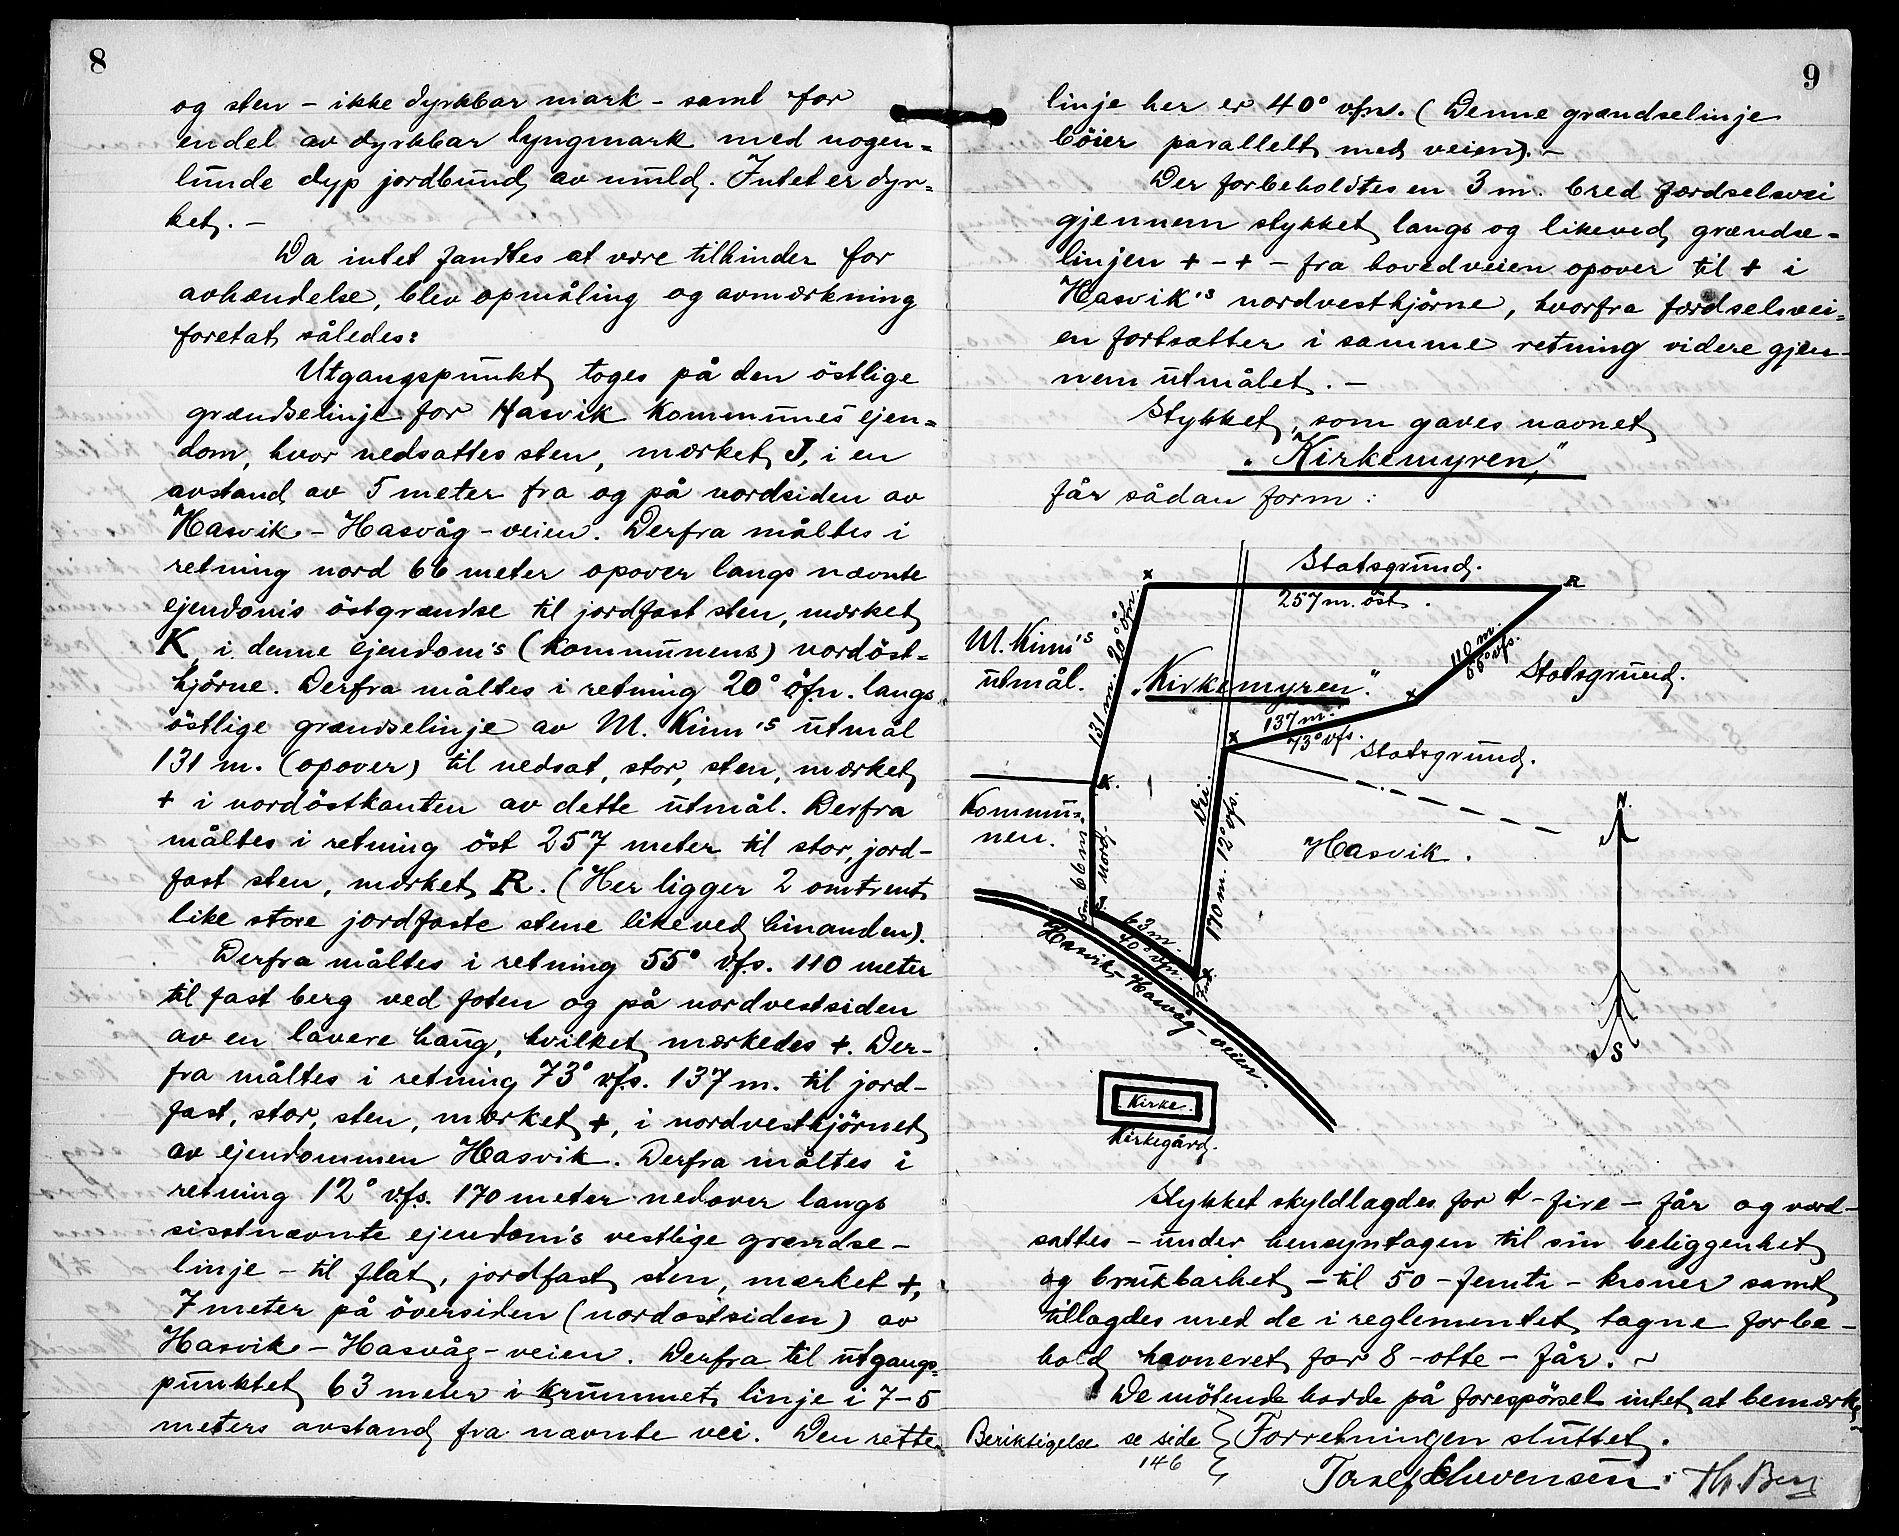 8
og sten – ikke dyrkbar mark – samt for
endel av dyrkbar lyngmark med nogen=
lunde dyp jordbund av muld. Intet er dyr=
ket. –
Da intet fandtes at være tilhinder for
avhændelse, blev opmåling og avmærkning
foretat således:
Utgangspunkt toges på den östlige
grændselinje for Hasvik kommunes ejen=
dom, hvor nedsattes sten, mærket J, i en
avstand av 5 meter fra og på nordsiden av
Hasvik – Hasvåg – veien. Derfra måltes i
retning nord 66 meter opover langs nævnte
ejendom's östgrændse til jordfast sten, mærket
K i denne ejendom's (kommunens) nordöst=
hjörne. Derfra måltes i retning 20° öfn. langs
östlige grændselinje av M. Kinn's utmål
131 m. (opover) til nedsat, stor, sten, mærket
+ i nordöstkanten av dette utmål. Derfra
måltes i retning öst 257 meter til stor, jord–
fast sten, mærket R. (Her ligger 2 omtrent
like store jordfaste stene likeved hinanden).
Derfra måltes i retning 55° vfs. 110 meter
til fast berg ved foten og på nordvestsiden
av en lavere haug, hvilket mærkedes +. Der–
fra måltes i retning 73° vfs. 137 m. til jord–
fast, stor, sten, mærket +, i nordvesthjörnet
av ejendommen Hasvik. Derfra måltes i
retning 12° vfs. 170 meter nedover langs
sistnævnte ejendom's vestlige grændse–
linje – til flat, jordfast sten, mærket +,
7 meter på översiden (nordostsiden) av
Hasvik – Hasvåg – veien. Derfra til utgangs=
punktet 63 meter i krummet linje i 7–5
meters avstand fra nævnte vei. Den rette
9
linje her er 40° vfn. (Denne grændselinje
böier parallelt med veien). –
Der forbeholdtes en 3 m. bred færdselsvei
gjennem stykket langs og likeved grændse=
linjen + – + – fra hovedveien opover til + i
Hasvik's nordvesthjörne, hvorfra færdselsvei=
en fortsætter i samme retning videre gjen–
nem utmålet. –
Stykket, som gaves navnet
„Kirkemyren,"
får sådan form:
Statsgrund.
x
R
257 m. öst.
M. Kinn's
utmål.
131 m. 20° öfn.
110 m.
55° vfs.
Statsgrund.
„Kirkemyren."
x
137 m.
73° vfs.
x
Statsgrund.
K.
Kommu=
nen.
66 m.
nord.
Vei.
170 m. 12° vfs.
Hasvik.
N.
J.
5 m.
63 m.
40° vfn.
x
7 m.
Hasvik – Hasvåg – veien.
S
Kirke.
Kirkegård.
Stykket skyldlagdes for 4 – fire – får og værd–
sattes – under hensyntagen til sin beliggenhet
og brukbarhet – til 50 – femti – kroner samt
tillagdes med de i reglementet tagne forbe–
hold havneret for 8 – otte – får. –
De mötende hadde på forespörsel intet at bemærke
Beriktigelse se side
146
Forretningen sluttet.
Th. Berg